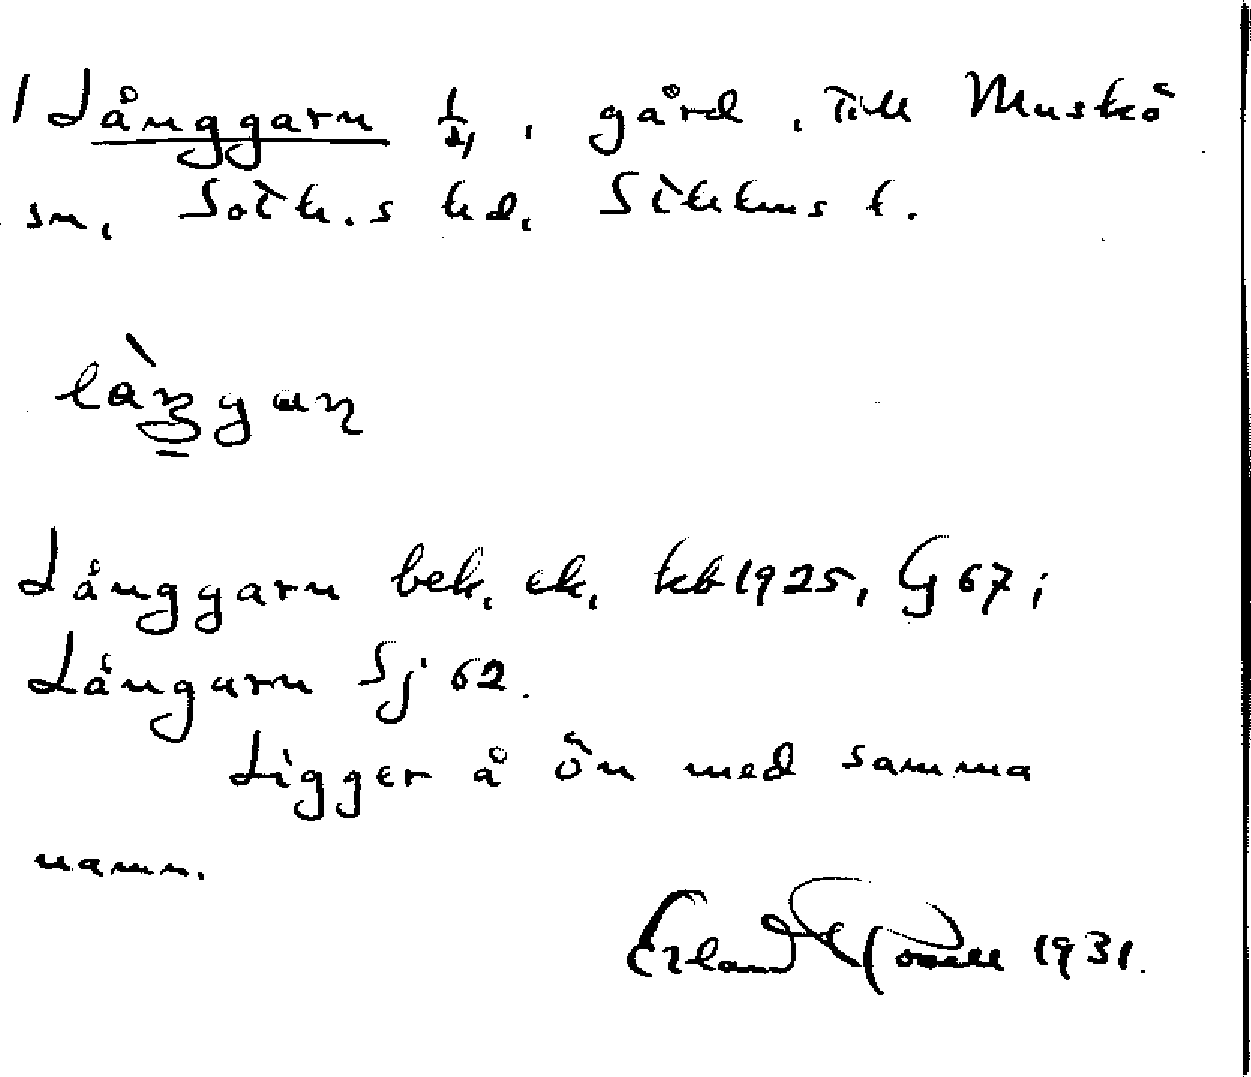 1 Långgarn 1/4, gård, till Muskö
sn, Soth.s hd, Sthlms l.
Långgarn bek. ek. kb 1925, G 67;
Långarn Sj 62.
Ligger å ön med samma
namn.
Erland 1931.